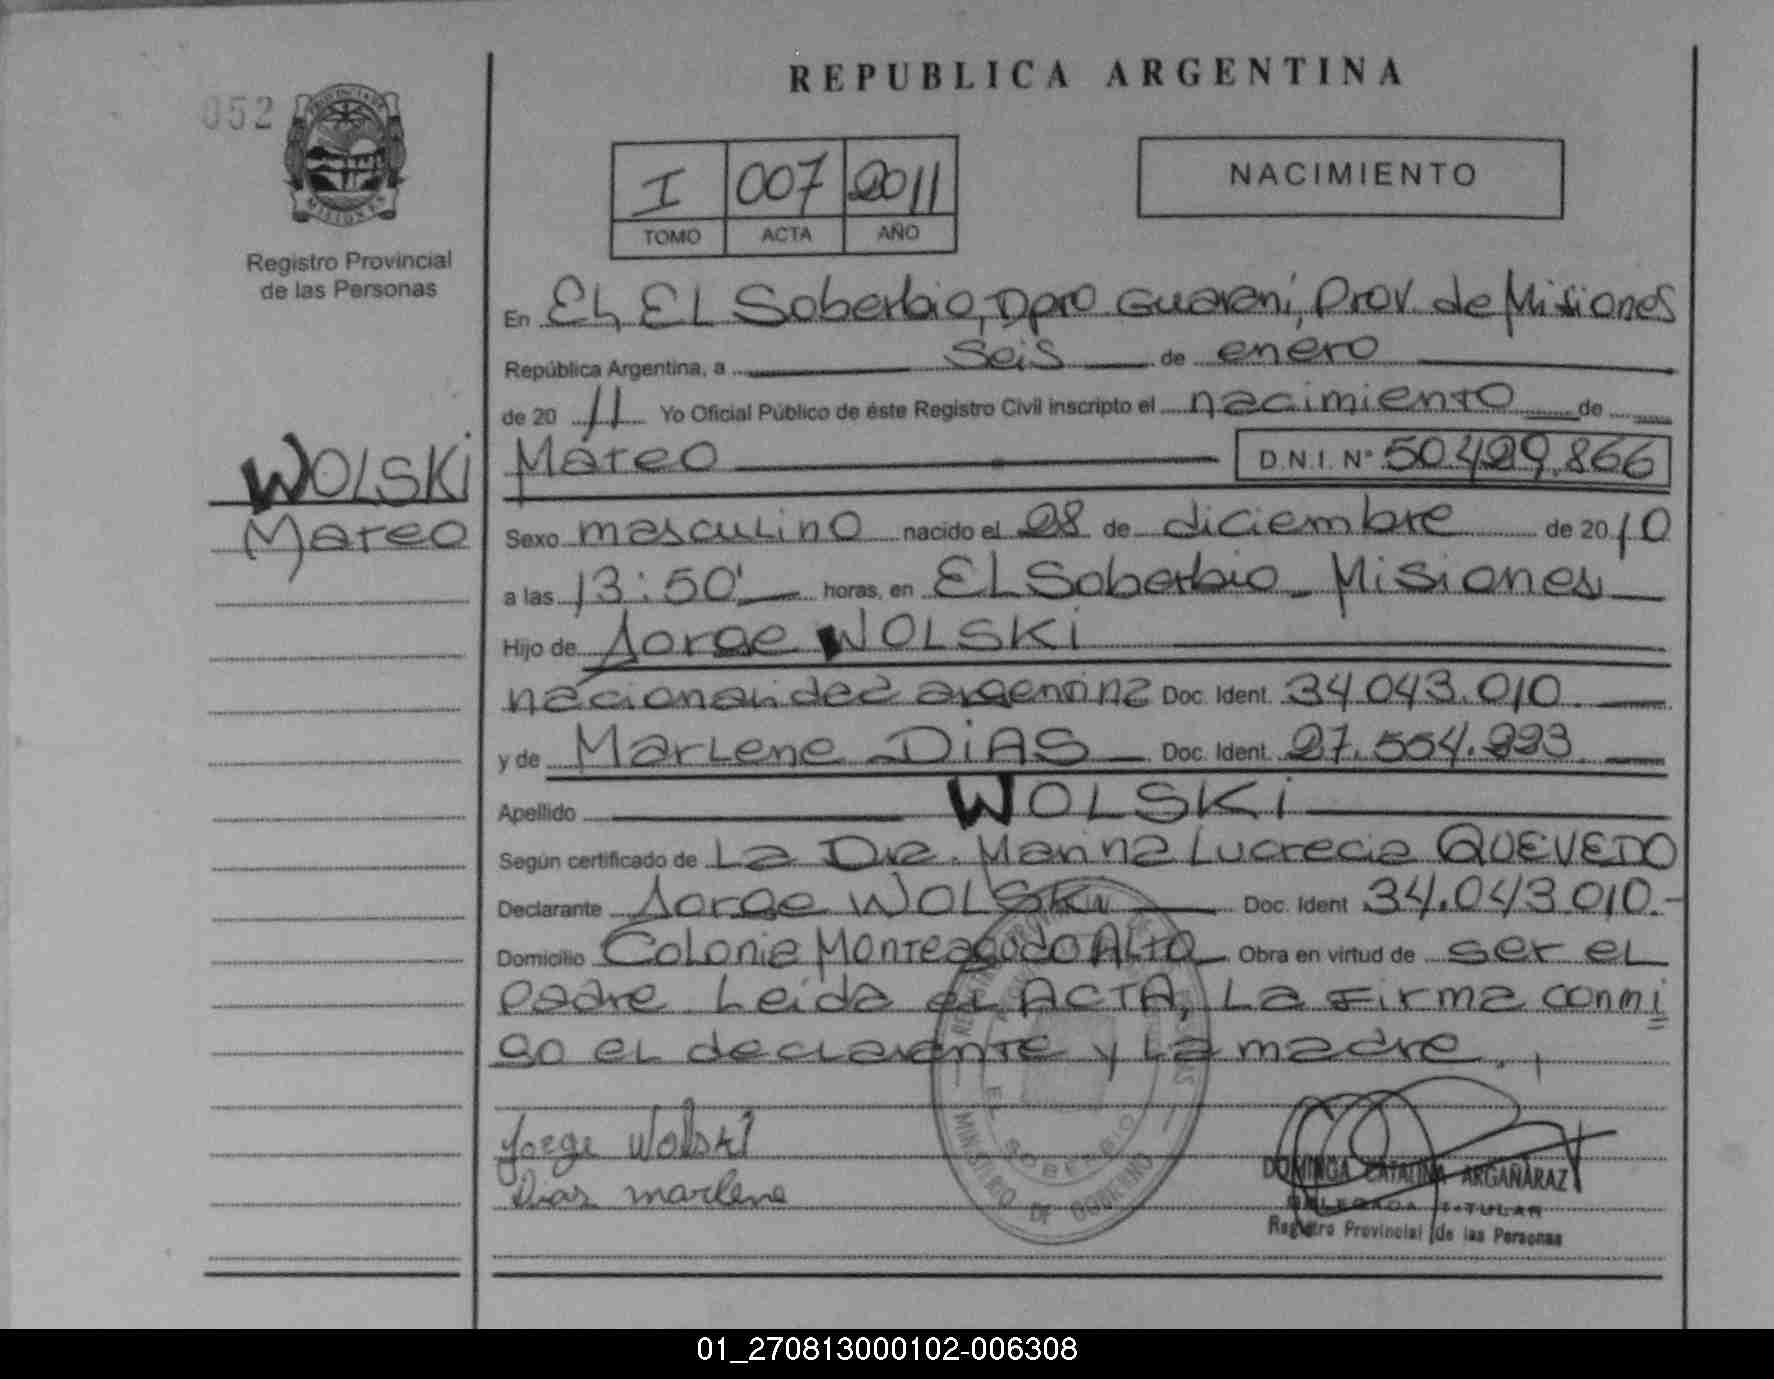 REPUBLICA ARGENTINA
052
PROVINCIA DE
MISIONES
Registro Provincial
de las Personas
I 007 2011
TOMO ACTA AÑO
NACIMIENTO
En EL EL Soberbio, Dpto Guaraní, Prov. de Misiones
República Argentina, a seis de enero
de 20 11 Yo Oficial Público de éste Registro Civil inscripto el nacimiento de
Mateo D.N.I. Nº 50.429.866
WOLSKi
Mateo
Sexo masculino nacido el 28 de diciembre de 2010
a las 13:50' horas, en EL Soberbio - Misiones
Hijo de Jorge WOLSKi
nacionalidad argentina Doc. Ident. 34.043.010.
y de Marlene DiAS Doc. Ident. 27.554.223
Apellido WOLSKi
Según certificado de La Dra. Marina Lucrecia QUEVEDO
Declarante Jorge WOLSKi Doc. Ident 34.043.010.-
Domicilio Colonia Monteagudo ALTO Obra en virtud de ser el
padre Leida el ACTA, La firma conmi
go el declarante y La madre.
Jorge Wolski
Dias marlene
EL SOBERBIO
MINISTERIO DE GOBIERNO
DOMINGA CATALINA ARGAÑARAZ
DELEGADA TITULAR
Registro Provincial de las Personas
01_270813000102-006308